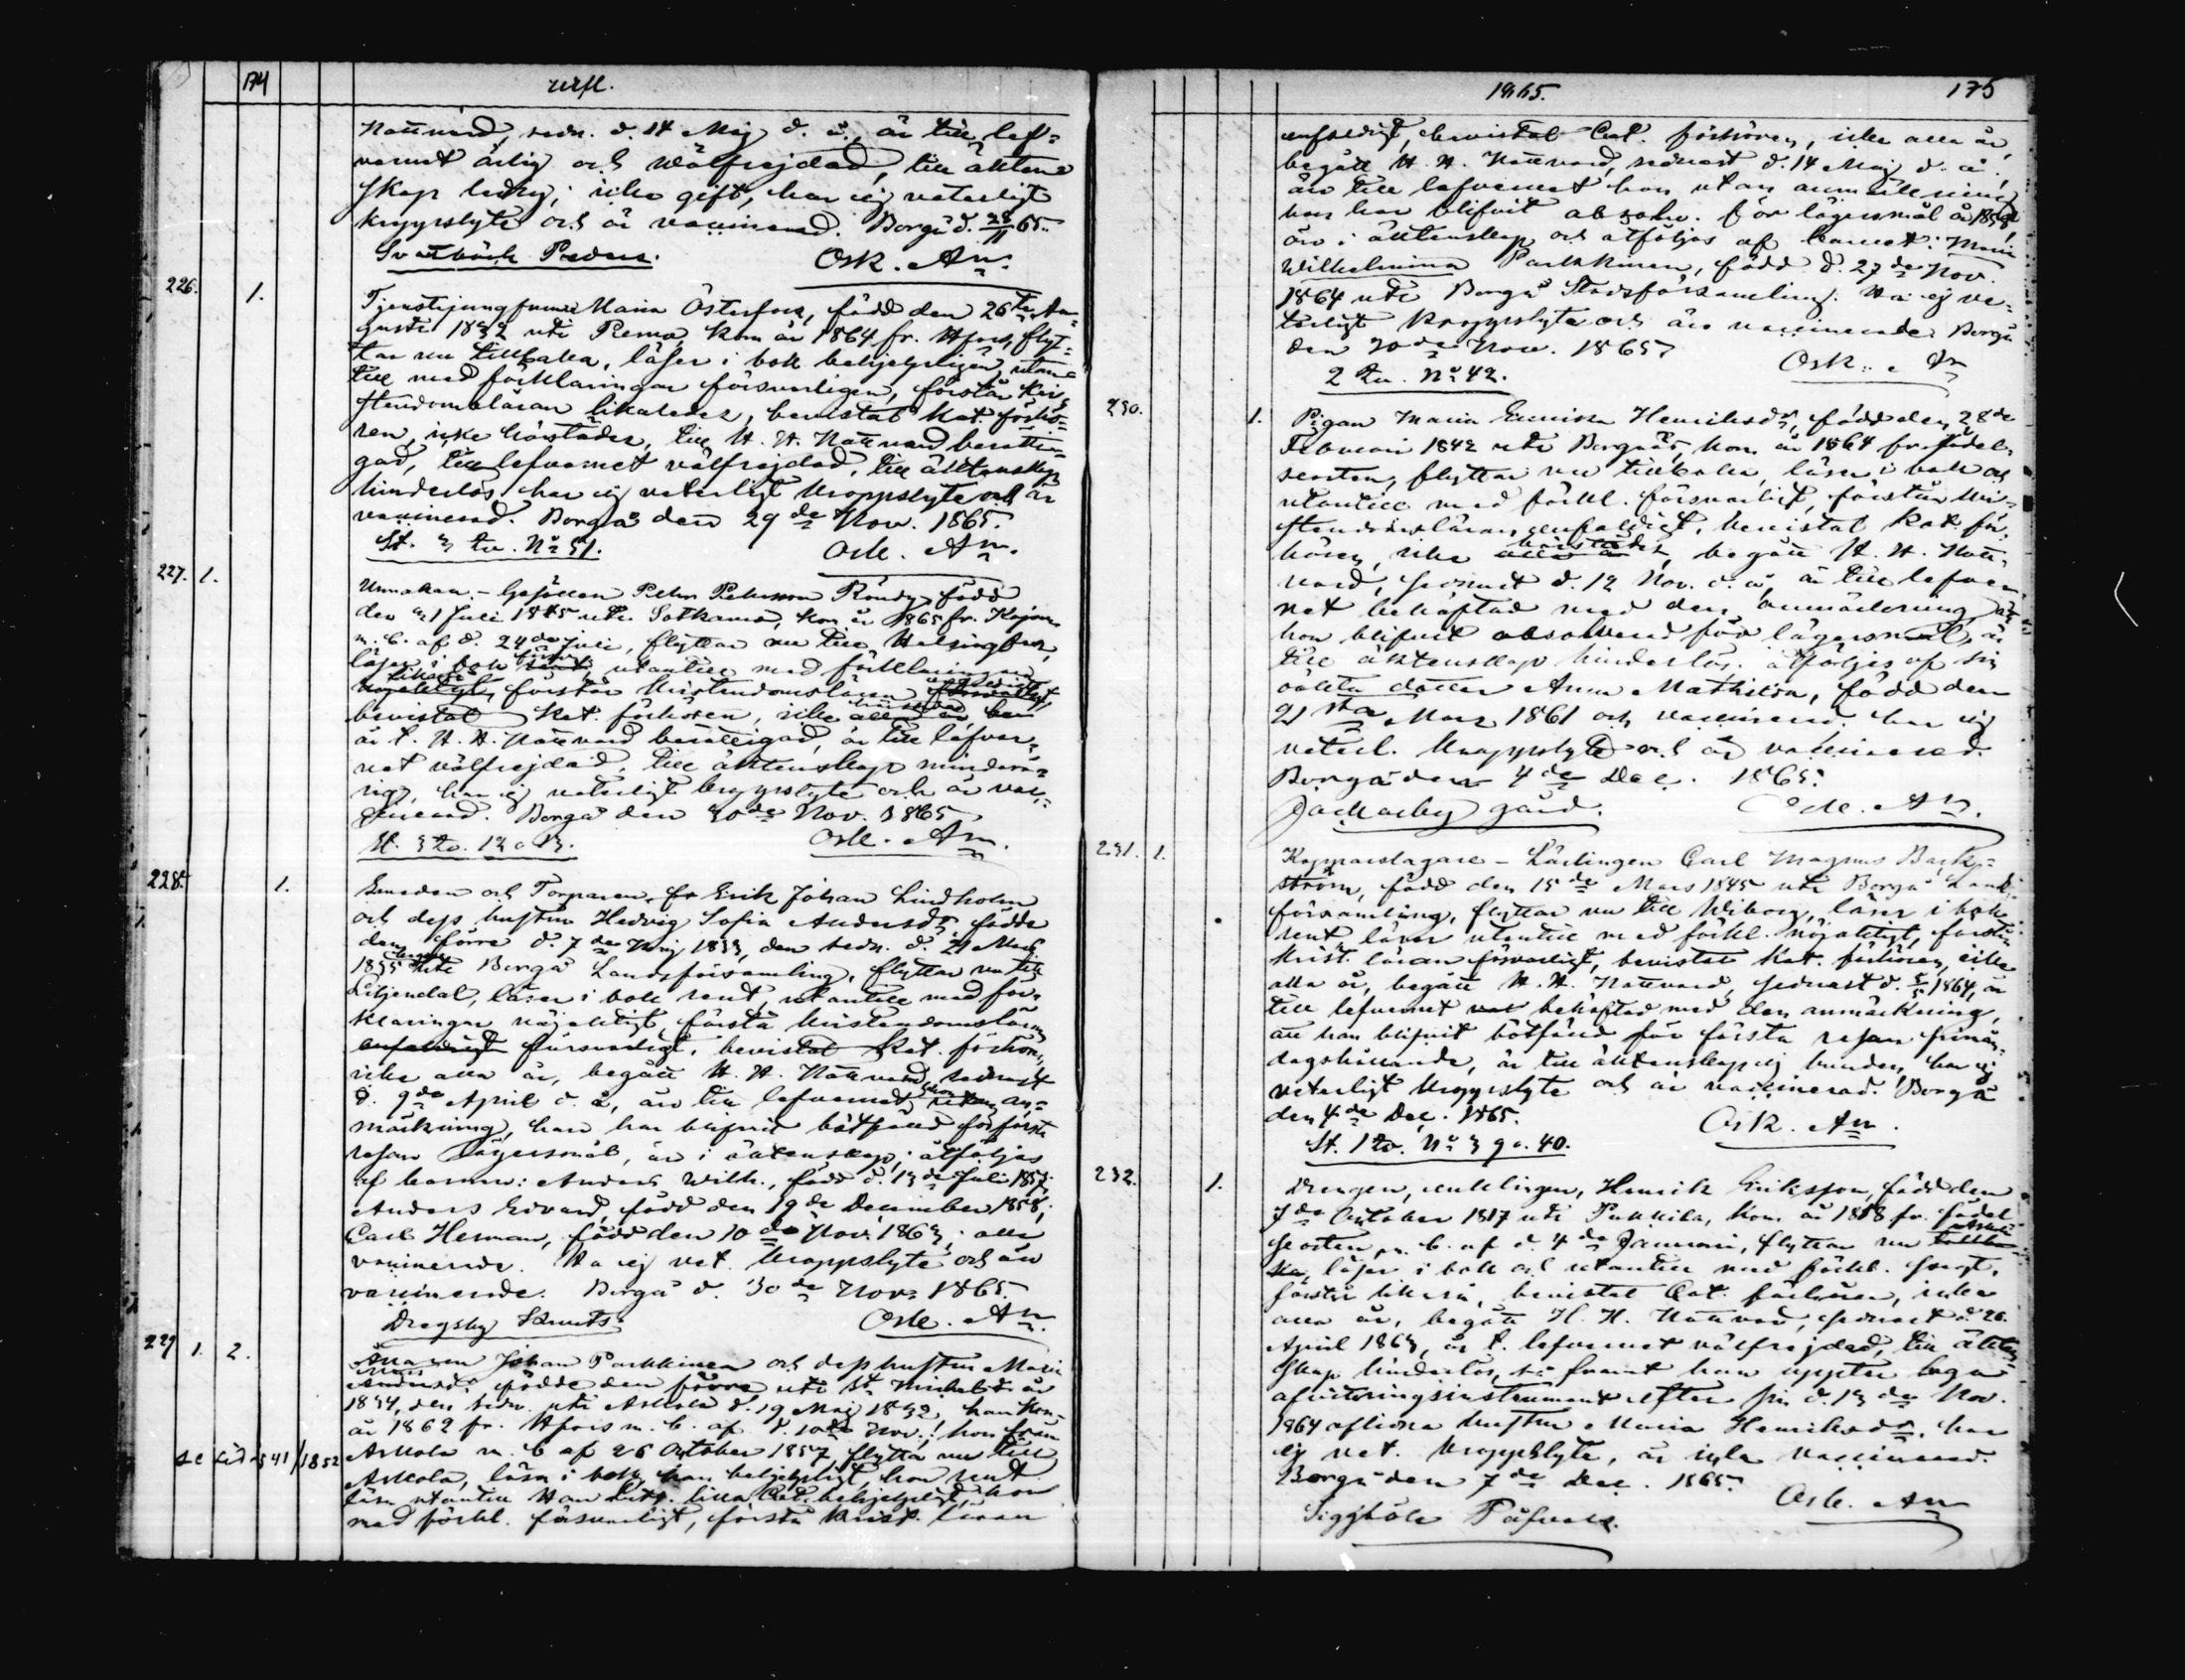 174
Utfl.
Nattvard, sedn. d. 14 Maj d. å., är till lef-
vernet ärlig och wälfrejdad, till äkten-
skap ledig, icke gift, har ej veterligt
kroppslyte och är vaccinerad. Borgå d. 28/11 65.
Svartbäck Peders. Osk. Am.
226. 1.
Tjenstejungfrun Maria Österfors, född den 26te Au-
gusti 1832 uti Perno, kom år 1864 fr. Hfors, flyt-
tar nu tillbaka, läser i bok behjelpligen, utan-
till med förklaringar försvarligen, förstår Kri-
stendomsläran likaledes, bevistat Kat. förhö-
ren, icke härstädes, till H. H. Nattvard berätti-
gad, till lefvernet välfrejdad, till äktenskap
hinderlös, har ej veterligt kroppslyte och är
vaccinerad. Borgå den 29de Nov. 1865.
St. 3 tu. No 51. Osk. Am.
227. 1.
Gesällen Petter Petersson född
den 1 Juli 1845 uti Sotkamo, kom år 1865 fr. Kajana
m. b. af d. 24de Juli, flyttar nu till Helsingfors,
läser i bok utantill med förklaringar
förstår Kristendomsläran
bevistat Kat. förhören, icke härstädes
är t. H. H. Nattvard berättigad, är till lefver-
net välfrejdad, till äktenskap minderå-
rig, har ej veterligt kroppslyte och är vac-
cinerad. Borgå den 30de Nov. 1865
St. 3 tu. 12 o 13. Osk. Am.
228. 1.
Smeden och Torparen Erik Johan Lindholm
och dess hustru Hedvig Sofia Andersdr. födde
den förre d. 7de Maj 1833, den sedn. d. 21 Mars
1835 begge uti Borgå Landsförsamling, flyttar nu till
Liljendal, läser i bok rent, utantill med för-
klaringar nöjaktigt, förstå Kristendomsläran
enfaldigt försvarligt, bevistat Kat. förhören,
icke alla år, begått H. H. Nattvard, sednast
d. 9de April d. å, äro till lefvernet hon utan an-
märkning, han har blifvit bötfäld för första
resan lägersmål, äro i äktenskap; åtföljas
af barnen: Anders Wilh., född d. 13de Juli 1857;
Anders Edvard född den 19de December 1858;
Carl Herman, född den 10de Nov. 1863; alla
vaccinerade. Ha ej vet. kroppslyte och äro
vaccinerade. Borgå d. 30de Nov. 1865.
Dregsby Knuts. Osk. Am.
229 1. 2.
Johan Parkkinen och dess hustru Maria
Andersdr. födde den förre uti St. Michel år
1834, den sedn. uti Askola d. 19 Maj 1832, han kom
år 1862 fr. Hfors m. b. af d. 10de Nov.; hon från
Askola m. b af 26 October 1857, flytta nu till
Askola, läsa i bok, han behjelpligt, hon rent.
läsa utantill Han Luth. lilla Cat. behjelpligt, hon
med förkl. försvarligt, förstå Krist. läran
se sid 541/1852
1865. 175
enfaldigt, bevistat Cat. förhören, icke alla år,
begått H. H. Nattvard, sednast d. 14 Maj d. å.,
äro till lefvernet han utan anmärkning,
hon har blifvit absolv. för lägersmål år 1858,
äro i äktenskap och åtföljas af barnet: Maria
Wilhelmina Parkkinen, född d. 27de Nov.
1864 uti Borgå Stadsförsamling. Ha ej ve-
terligt kroppslyte och äro vaccinerade. Borgå
den 30de Nov. 1865.
2 tu. No 42. Osk. Am
230. 1.
Pigan Maria Henriksdr., född den 28de
Februari 1842 uti Borgnäs, kom år 1864 fr. födel-
seorten, flyttar nu tillbaka, läser i bok och
utantill med förkl. försvarligt, förstår Kri-
stendomsläran enfaldigt, bevistat Kat. för-
hören, icke härstädes, begått H. H. Natt-
vard, sednast d. 12 Nov. d. å, är till lefver-
net behäftad med den anmärkning, att
hon blifvit absolverad för lägersmål, är
till äktenskap hinderlös. åtföljes af sin
oäkta dotter Anna Mathilda, född den
21sta Mars 1861 och vaccinerad. har ej
veterl. kroppslyte och är vaccinerad.
Borgå den 4de Dec. 1865.
Jackarby gård. Osk. Am.
231. 1.
Kopparslagare-Lärlingen Carl Magnus Bark-
ström, född den 15de Mars 1845 uti Borgå Lands-
församling, flyttar nu till Wiborg, läser i bok
rent läser utantill med förkl. nöjaktigt, förstår
Krist. läran försvarligt, bevistat Kat. förhören, icke
alla år, begått H. H. Nattvard, sednast d. 5/5 1864, är
till lefvernet behäftad med den anmärkning,
att han blifvit bötfäld för första resan
är till äktenskap ej bunden, har ej
veterligt kroppslyte och är vaccinerad. Borgå
den 4de Dec. 1865. Osk. Am.
St. 1 tu. No 39 o. 40.
232. 1.
Drengen, enklingen, Henrik Eriksson, född den
7de October 1817 uti Pukkila, kom år 1858 fr. födel-
seorten, m. b. af d. 4de Januari, flyttar nu
läser i bok och utantill med förkl. svagt,
förstår likaså, bevistat Cat. förhören, icke
alla år, begått H. H. Nattvard, sednast d. 26
April 1863, är t. lefvernet välfrejdad, till äkten-
skap hinderlös, så framt han uppter laga
afvittringsinstrument efter sin d. 13de Nov.
1864 aflidna hustru Maria Henriksdr., har
ej vet. kroppslyte, är icke vaccinerad.
Borgå den 7de Dec. 1865.
Siggböle Påfvals. Osk. Am